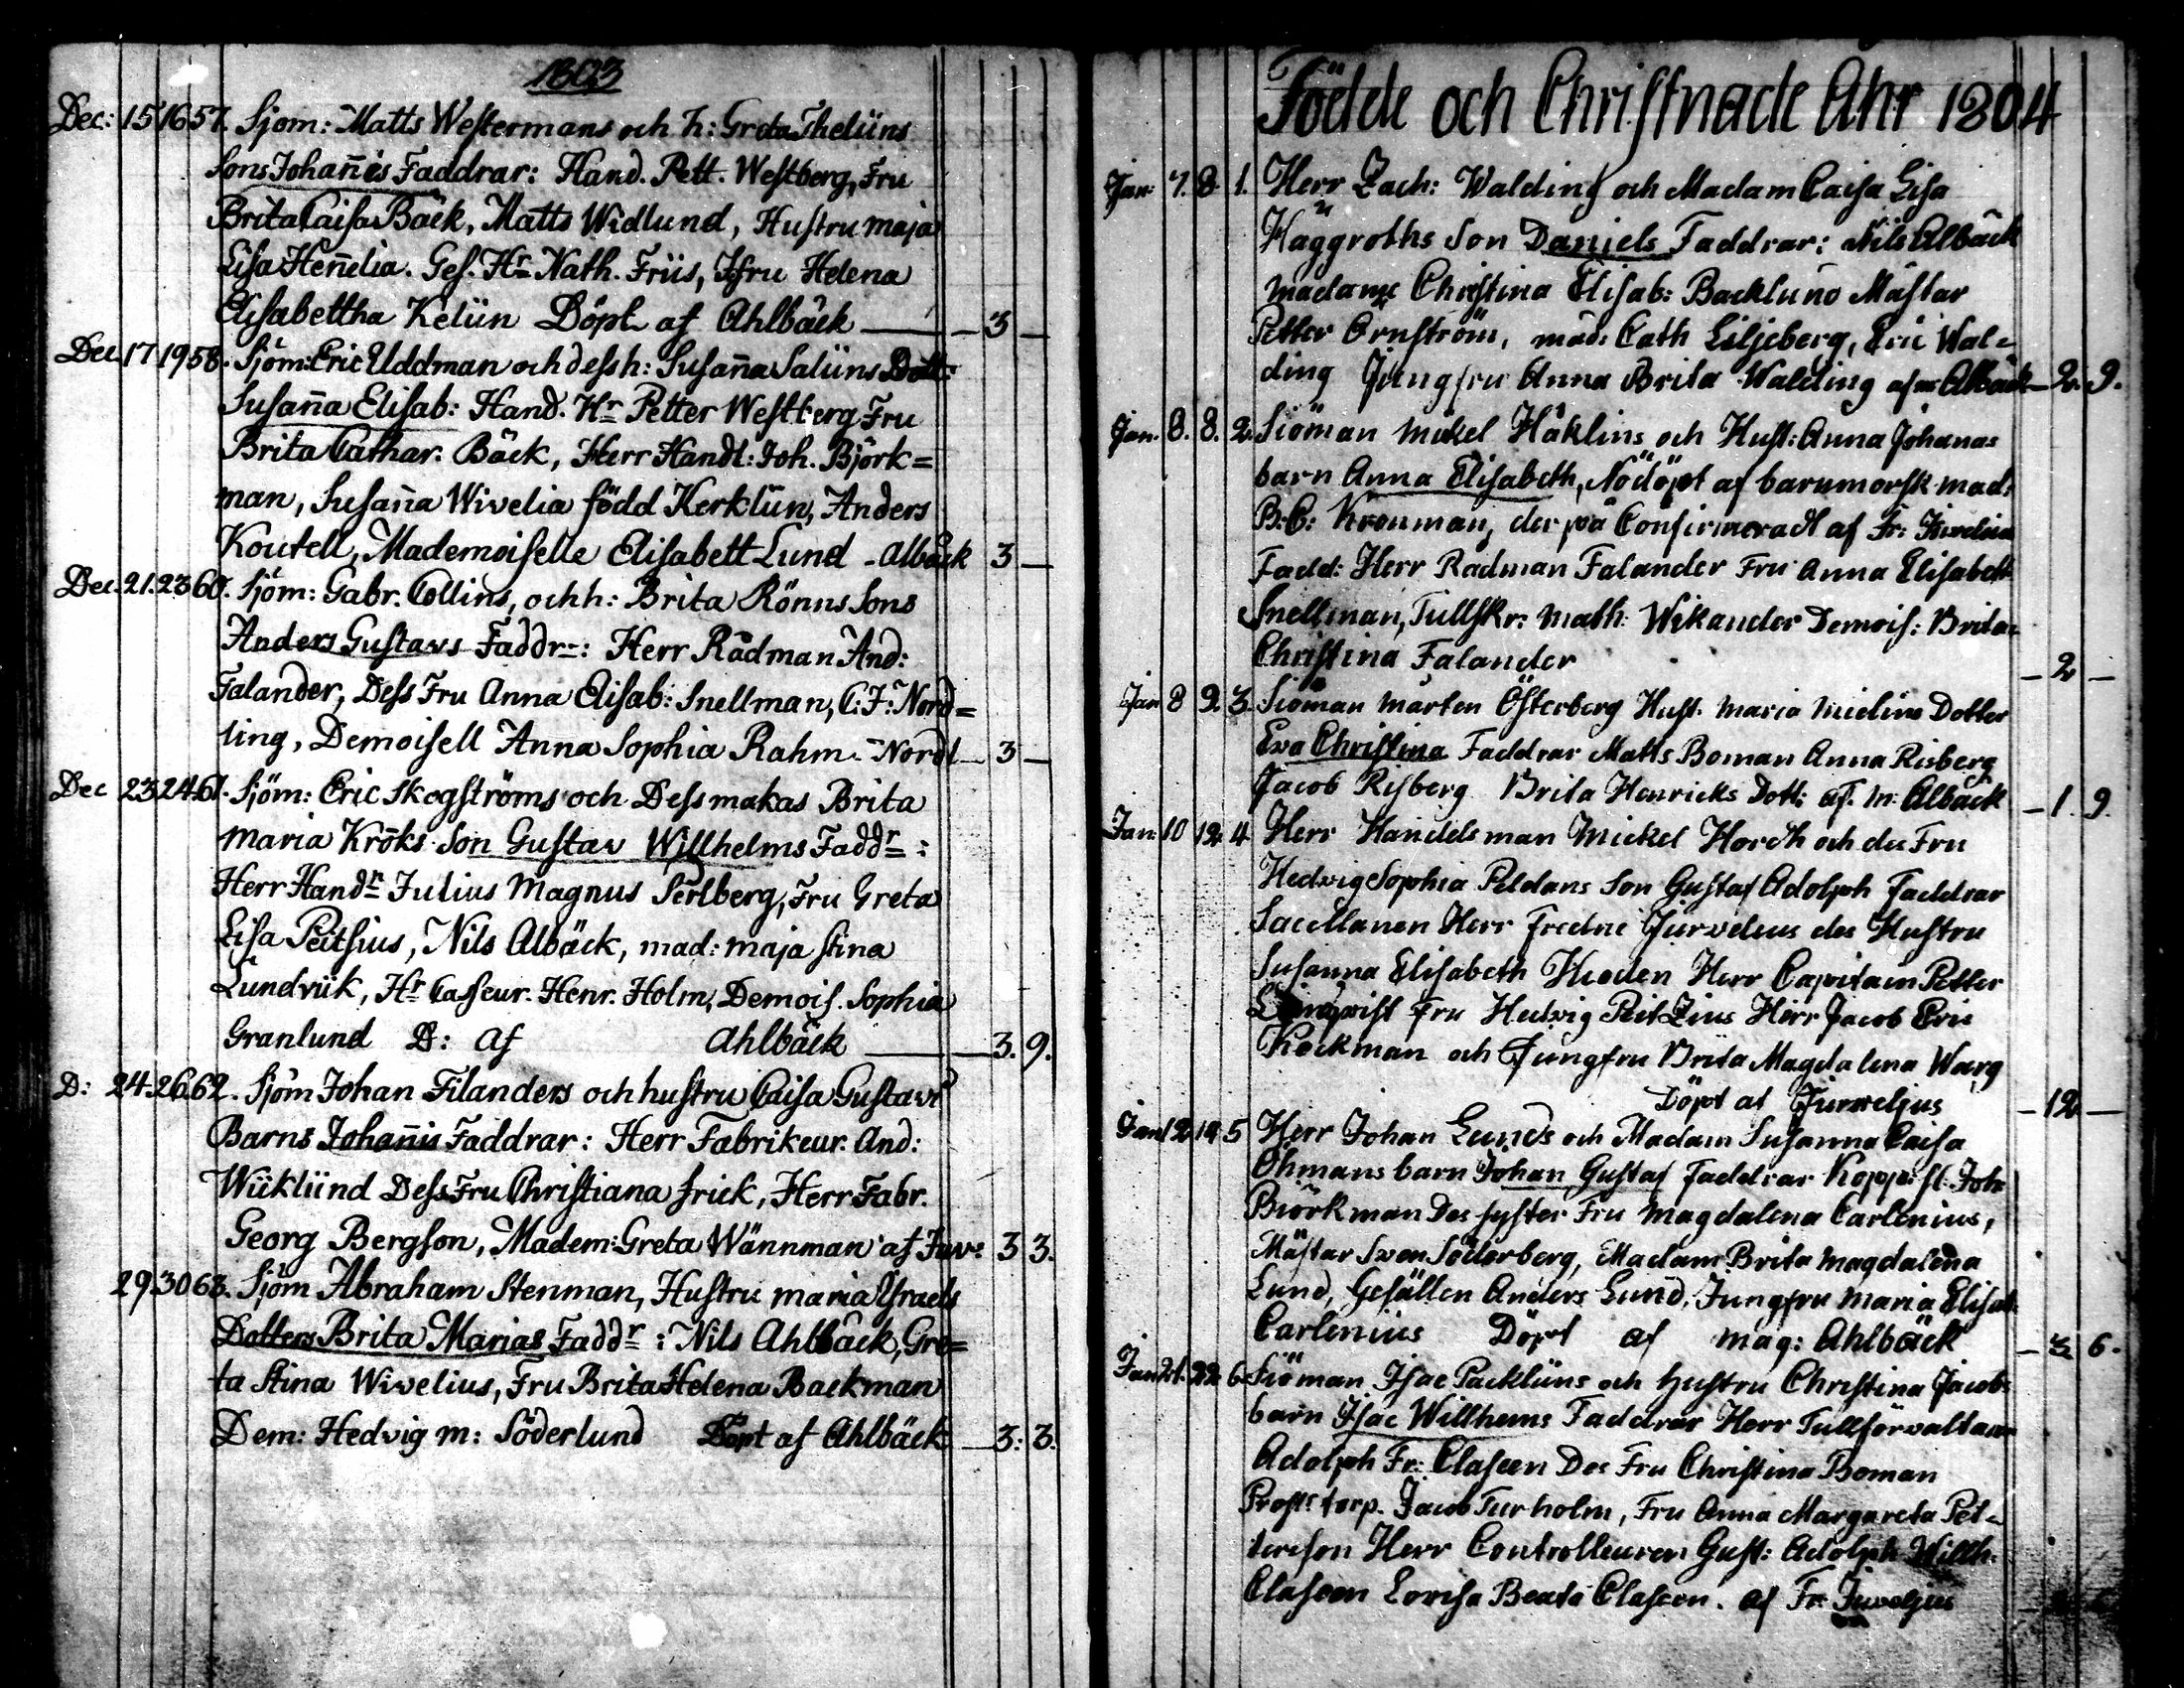 1803
Dec: 15 16 57. Sjöm: Matts Westermans och h: Greta Theliins
Sons Johan̄is Faddrar: Hand. Pett. Westberg, Fru
Brita Caisa Bäck, Matts Widlund, Hustru maja
Lisa Hen̄elia. Ges. Hr Nath. Friis, Jfru Helena
Elisabettha Keliin Döpt af Ahlbäck — 3 —
Dec. 17 19 58. Sjöm: Eric Uddman och dess h: Susan̄a Saliins Dott:
Susan̄a Elisab: Hand. Hr Petter Westberg Fru
Brita Cathar. Bäck, Herr Handl: Joh. Björk=
man, Susan̄a Wivelia född Kerkliin, Anders
Koutell, Mademoiselle Elisabett Lund - Albäck 3 —
Dec. 21. 23 60. Sjöm: Gabr. Collins, och h: Brita Rönns Sons
Anders Gustavs Faddr: Herr Rådman And:
Falander, Dess Fru Anna Elisab: Snellman, C: J: Nord=
ling, Demoisell Anna Sophia Rahm - Nordl — 3 —
Dec 23 24 61. Sjöm: Eric Skogströms och Dess makas Brita
Maria Kröks Son Gustav Willhelms Faddr:
Herr Handr Julius Magnus Perlberg, Fru Greta
Lisa Peitsius, Nils Albäck, mad: maja stina
Lundviik, Hr Casseur. Henr. Holm, Demois. Sophia
Granlund D: af Ahlbäck — 3. 9.
D: 24. 26. 62. Sjöm Johan Filanders och hustru Caisa Gustavs
Barns Johan̄is Faddrar: Herr Fabrikeur. And:
Wiikliind Dess Fru Christiana Frick, Herr Fabr.
Georg Bergson, Madem: Greta Wännman af Juv: 3 3.
29. 30 63. Sjöm Abraham Stenman, Hustru maria Israels
Dotters Brita Marias Faddr: Nils Ahlbäck, Gre=
ta Stina Wivelius, Fru Brita Helena Backman
Dem: Hedvig m: Söderlund Döpt af Ahlbäck — 3: 3.
Födde och Christnade Åhr 1804
Jan: 7. 8 1. Herr Zach: Walding och Madam Caisa Lisa
Häggroths Son Daniels Faddrar: Nils Albäck
madame Christina Elisab: Backlund Mästar
Petter Örnström, mad: Cath Liljeberg, Eric Wal=
ding Jungfru Anna Brita Walding af m Albäck — 2. 9.
Jan. 8. 8. 2. Siöman Mickel Häklins och Hust: Anna Johanas
barn Anna Elisabeth, Nödöpt af barnmorsk mad:
B: C: Kronman, der på Confirmeradt af Fr:
Fadd: Herr Rådman Falander Fru Anna Elisabeth
Snellman, Tullskr: Math: Wikander Demois: Brita
Christina Falander — 2 —
Jan 8 9. 3. Siöman Mårten Österberg Hust. Maria Mielins Dotter
Eva Christina Faddrar Matts Boman Anna Risberg
Jacob Risberg Brita Henricks Dott: af. m: Albäck — 1. 9.
Jan: 10 12 4 Herr Handelsman Mickel Hordh och des Fru
Hedvig Sophia Peldans Son Gustaf Adolph Faddrar
Sacellanen Herr Fredric Jurvelius des Hustru
Susanna Elisabeth Herr Capitain Petter
Fru Hedvig PeitZius Herr Jacob Eric
Kockman och Jungfru Brita Magdalena Warg
Döpt af Jurveljus — 12 —
Jan 12 12 5 Herr Johan Lunds och Madam Susanna Caisa
Öhmans barn Johan Gustaf Faddrar Kopp: sl: Joh
Björkman Des syster Fru Magdalena Carlenius,
Mästar Sven Söderberg, Madam Brita Magdalena
Lund, Gesällen Anders Lund, Jungfru Maria Elisab:
Carlenius Döpt af Mag: Ahlbäck — 3 6.
Jan 21. 22 6 Siöman Isac Packliins och Hustru Christina Jacobs
barn Isac Willhems Faddrar Herr Tullförvaltaren
Adolph Fr: Claseen Des Fru Christina Boman
Jacob Turholm, Fru Anna Margareta Pet=
tersson Herr Controlleuren Gust: Adolph Willh.
Claseen Lovisa Beata Claseen. af Fr: Juveljus